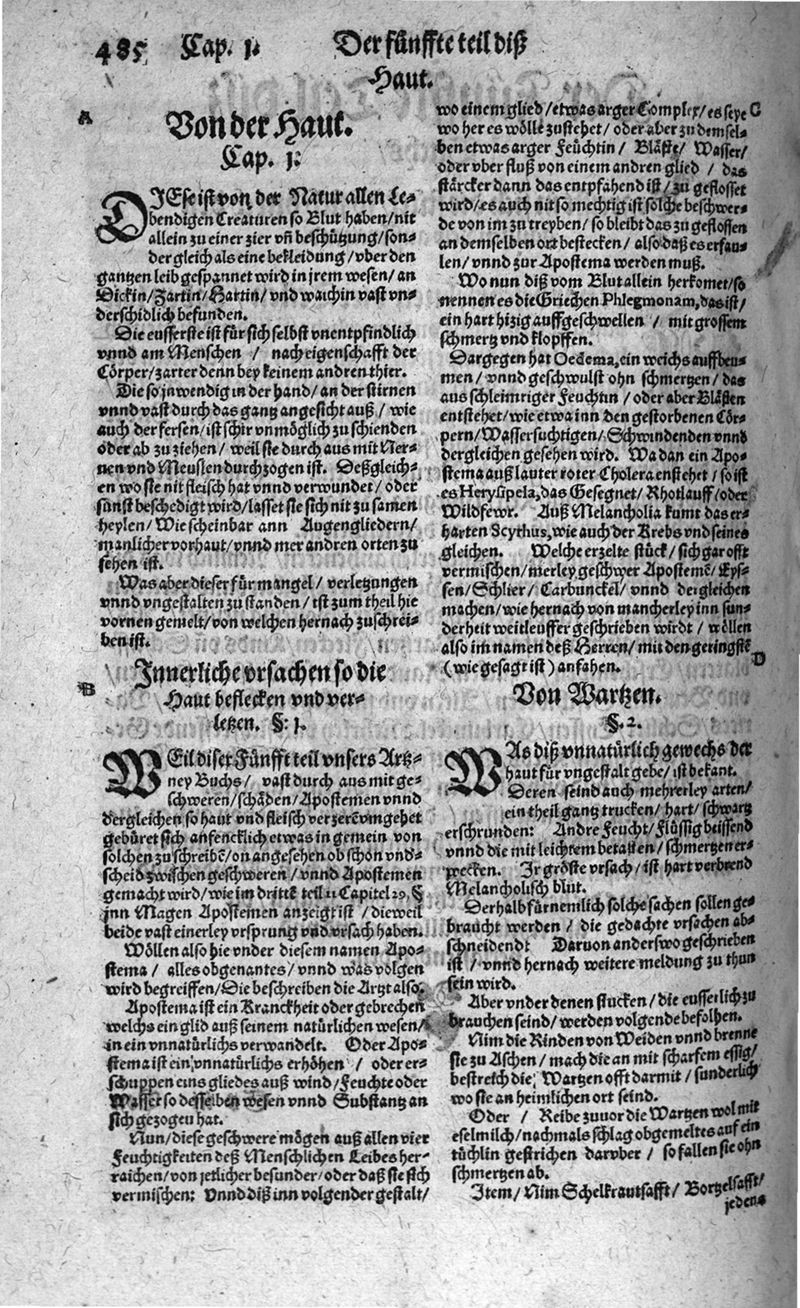 485 Cap. 1. Der fünffte teil diß
Haut.
A
Von der Haut.
Cap. 1.
DIEse ist von der Natur allen Le-
bendigen Creaturen so Blut haben/nit
allein zu einer zier vñ beschützung/son-
der gleich als eine bekleidung/vber den
gantzen leib gespannet wird in jrem wesen/an
Dickin/Zartin/Hartin/vnd waichin vast vn-
derschidlich befunden.
Die eusserste ist für sich selbst vnentpfindlich
vnnd am Menschen / nach eigenschafft der
Cörper/zarter denn bey keinem andren thier.
Die so inwendig in der hand/an der stirnen
vnnd vast durch das gantz angesicht auß / wie
auch der fersen/ist schir vnmöglich zu schienden
oder ab zu ziehen / weil sie durch aus mit Ner-
nen vnd Meuslen durchzogen ist. Deßgleich-
en wo sie nit fleisch hat vnnd verwundet / oder
sunst beschedigt wird/lasset sie sich nit zu samen
heylen/Wie scheinbar ann Augengliedern/
manlicher vorhaut/vnnd mer andren orten zu
sehen ist.
Was aber dieser für mangel / verletzungen
vnnd vngestalten zu standen / ist zum theil hie
vornen gemelt/von welchen hernach zuschrei-
ben ist.
B
Innerliche vrsachen so die
Haut beflecken vnd ver-
letzen. §. 1.
WEil diser Fünfft teil vnsers Artz-
ney Buchs / vast durch aus mit ge-
schweren/schäden/Apostemen vnnd
dergleichen so haut vnd fleisch verzerē vmgehet
gebüret sich anfencklich etwas in gemein von
solchen zuschreibē/on angesehen ob schon vnd-
scheid zwischen geschweren / vnnd Apostemen
gemacht wird/wie im drittē teil 11 Capitel 29. §
inn Magen Apostemen anzeigt ist / dieweil
beide vast einerley vrsprung vnd vrsach haben.
Wöllen also hie vnder diesem namen Apo-
stema / alles obgenantes / vnnd was volgen
wird begreiffen/Die beschreiben die Artzt also.
Apostema ist ein Kranckheit oder gebrechen
welchs ein glid auß seinem natürlichen wesen/
in ein vnnatürlichs verwandelt. Oder Apo-
stema ist ein vnnatürlichs erhöhen / oder er-
schuppen eins gliedes auß wind/Feuchte oder
Wasser so desselben wesen vnnd Substantz an
sich gezogen hat.
Nun/diese geschwere mögen auß allen vier
Feuchtigkeiten deß Menschlichen Leibes her-
raichen/von jetlicher besunder/oder daß sie sich
vermischen: Vnnd diß inn volgender gestalt/
wo einem glied/etwas arger Complex/es seye C
wo her es wölle zustehet/oder aber zu demsel-
ben etwas arger Feüchtin / Bläste/ Wasser/
oder vber fluß von einem andren glied / das
stärcker dann das entpfahend ist/zu geflosset
wird/es auch nit so mechtig ist solche beschwer-
de von im zu treyben/so bleibt das zu geflossen
an demselben ort bestecken/also daß es erfau-
len/vnnd zur Apostema werden muß.
Wo nun diß vom Blut allein herkomet/so
nennen es die Griechen Phlegmonam, das ist/
ein hart hizig auffgeschwellen / mit grossem
schmertz vnd klopffen.
Dargegen hat Oedema, ein weichs auffbeu-
men/vnnd geschwulst ohn schmertzen/das
aus schleimtiger Feuchtin / oder aber Blästen
entstehet/wie etwa inn den gestorbenen Cör-
pern/Wassersuchtigen/Schwindenden vnnd
dergleichen gesehen wird. Wa dan ein Apo-
stema auß lauter roter Cholera enstehet / so ist
es Herysipela, das Gesegnet/Rhotlauff/oder
Wildfewr. Auß Melancholia kumt das er-
harten Scythus, wie auch der Krebs vnd seines
gleichen. Welche erzelte stück/sich gar offt
vermischen/merley geschwer Apostemē/Eys-
sen/Schlier/Carbunckel/vnnd dergleichen
machen/wie hernach von mancherley inn sun-
derheit weitleuffer geschrieben wirdt / wöllen
also im namen deß Herren/mit den geringstē
(wie gesagt ist) anfahen. D
Von Wartzen.
§. 2.
WAs diß vnnatürlich gewechs der
haut für vngestalt gebe/ist bekant.
Deren seind auch mehrerley arten/
ein theil gantz trucken/hart/schwartz
erschrunden: Andre Feucht/Flüssig beissend
vnnd die mit leichtem betasten/schmertzen er-
wecken. Ir gröste vrsach/ist hart verbrend
Melancholisch blut.
Derhalb fürnemlich solche sachen sollen ge-
braucht werden / die gedachte vrsachen ab-
schneidendt Daruon anderswo geschrieben
ist / vnnd hernach weitere meldung zu thun
sein wird.
Aber vnder denen stucken/die eusserlich zu
brauchen seind/werden volgende befolhen.
Nim die Rinden von Weiden vnnd brenne
sie zu Aschen/mach die an mit scharfem essig/
bestreich die Wartzen offt darmit/sunderlich
wo sie an heimlichen ort seind.
Oder / Reibe zuuor die Wartzen wol mit
eselmilch/nachmals schlag obgemeltes auf ein
tüchlin gestrichen darvber / so fallen sie ohn
schmertzen ab.
Item/Nim Schelkrautsafft/ Bortzelsafft/
jedens